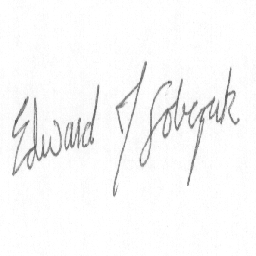 Edward J Sobczuk